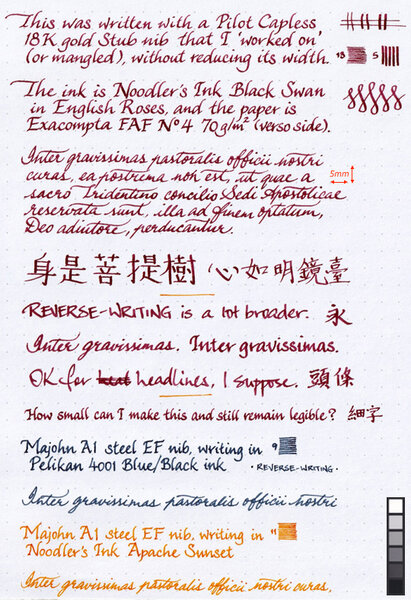 This was written with a Pilot Capless
18K gold Stub nib that I 'worked on'
(or mangled), without reducing its width.
18
5
The ink is Noodler's Ink Black Swan
in English Roses, and the paper is
Exacompta FAF Nº4 70g/m² (verso side).
Inter gravissimas pastoralis officii nostri
curas, ea postrema non est, ut quae a
sacro Tridentino concilio Sedi Apostolicae
reservata sunt, illa ad finem optatum,
Deo adiutore, perducantur.
5mm
身是菩提樹 心如明鏡臺
REVERSE-WRITING is a lot broader. 永
Inter gravissimas. Inter gravissimas.
OK for headlines, I suppose. 頭條
How small can I make this and still remain legible? 細字
Majohn A1 steel EF nib, writing in
Pelikan 4001 Blue/Black ink
9
· REVERSE-WRITING ·
Inter gravissimas pastoralis officii nostri
Majohn A1 steel EF nib, writing in
Noodler's Ink Apache Sunset
11
Inter gravissimas pastoralis officii nostri curas.